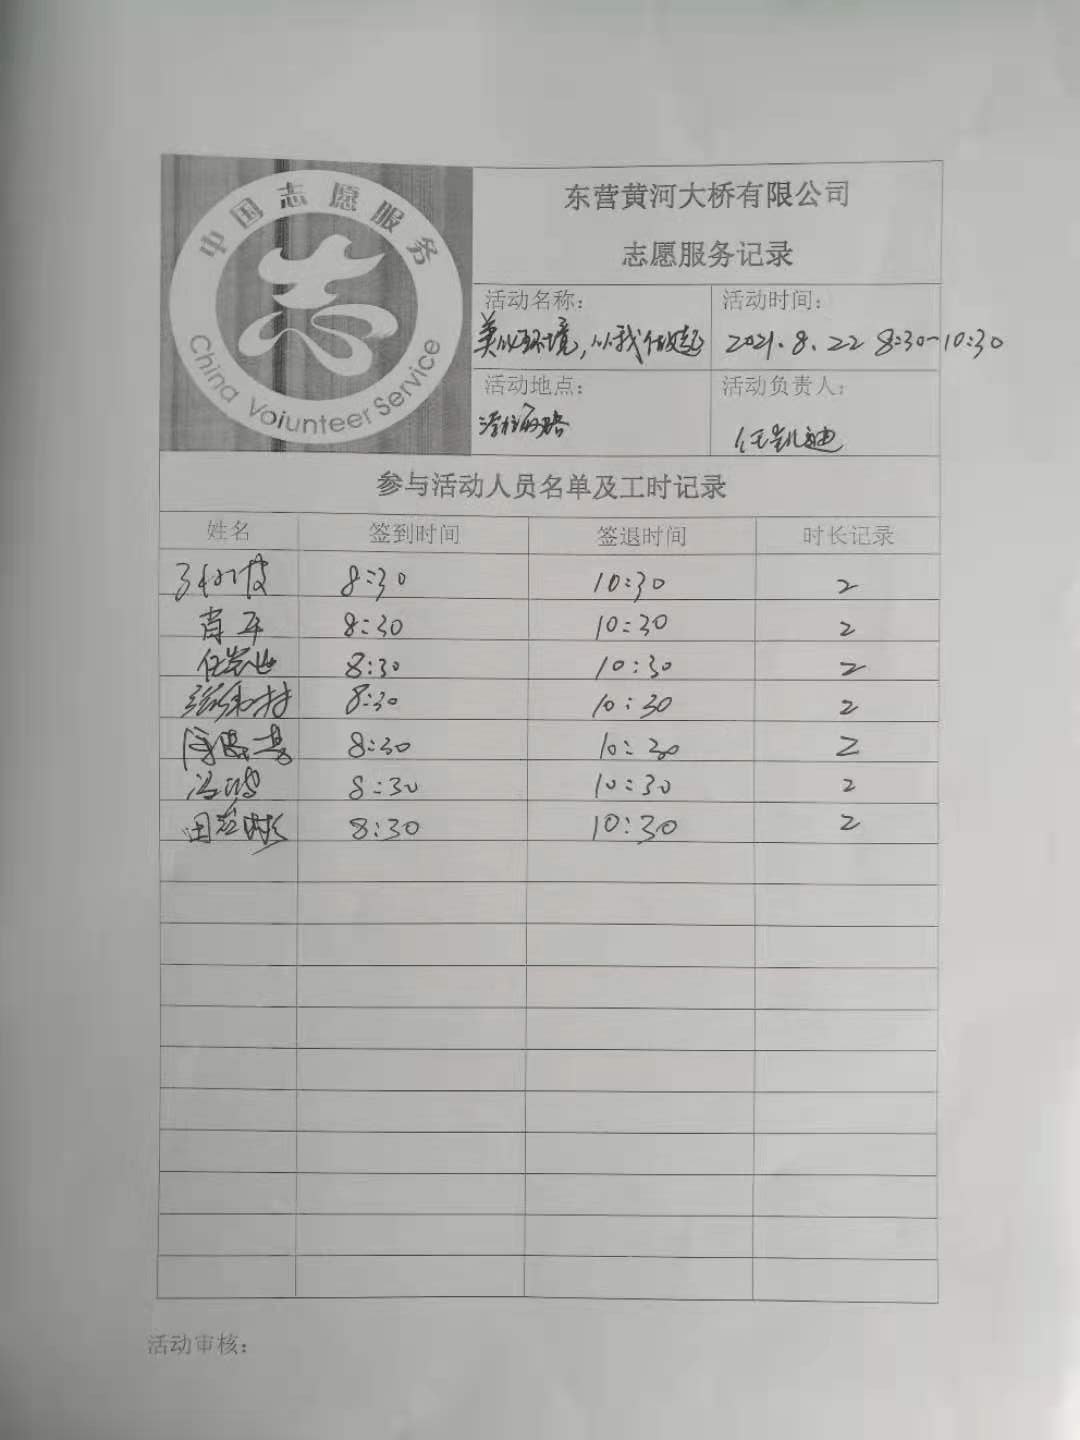 中国志愿服务
China Voiunteer Service
东营黄河大桥有限公司
志愿服务记录
活动名称：
美化环境，从我做起
活动时间：
2021.8.22 8:30-10:30
活动地点：
活动负责人：
任凯迪
参与活动人员名单及工时记录
姓名 签到时间 签退时间 时长记录
8:30 10:30 2
肖平 8:30 10:30 2
任凯迪 8:30 10:30 2
8:30 10:30 2
8:30 10:30 2
冯波 8:30 10:30 2
8:30 10:30 2
活动审核：